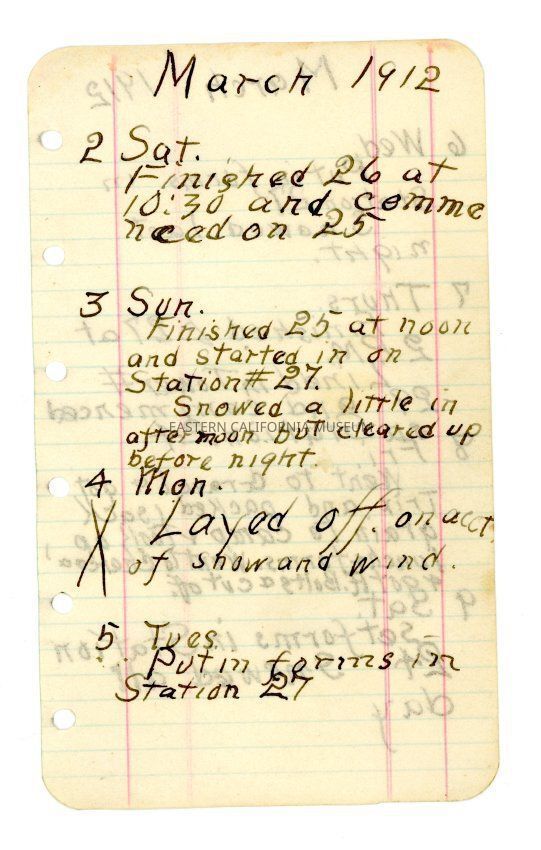 March 1912
2 Sat.
Finished 26 at
10:30 and comme
nced on 25
3 Sun.
Finished 25 at noon
and started in on
Station #27.
Snowed a little in
EASTERN CALIFORNIA MUSEUM
afternoon but cleared up
before night.
4 Mon.
X Layed off. on acct.
of snow and wind.
5 Tues.
Put in forms in
Station 27